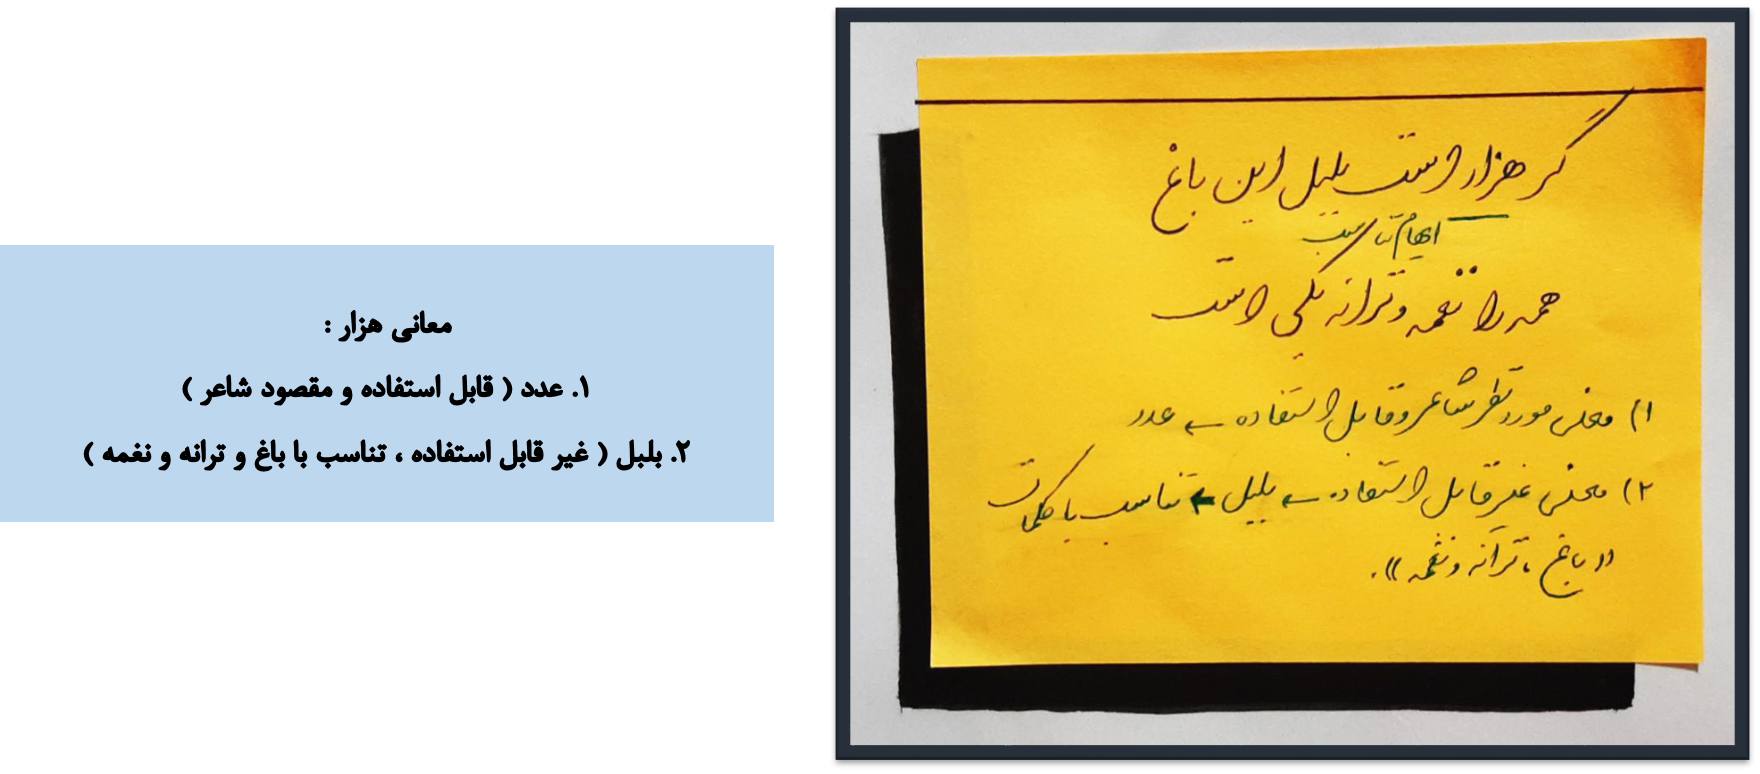 گر هزار است بلبل این باغ
ایهام تناسب
همه را نغمه و ترانه یکی است
۱) معنی مورد نظر شاعر و قابل استفاده ← عدد
۲) معنی غیر قابل استفاده ← بلبل ← تناسب با کلمات
«باغ ، ترانه و نغمه».
معانی هزار :
۱. عدد ( قابل استفاده و مقصود شاعر )
۲. بلبل ( غیر قابل استفاده ، تناسب با باغ و ترانه و نغمه )